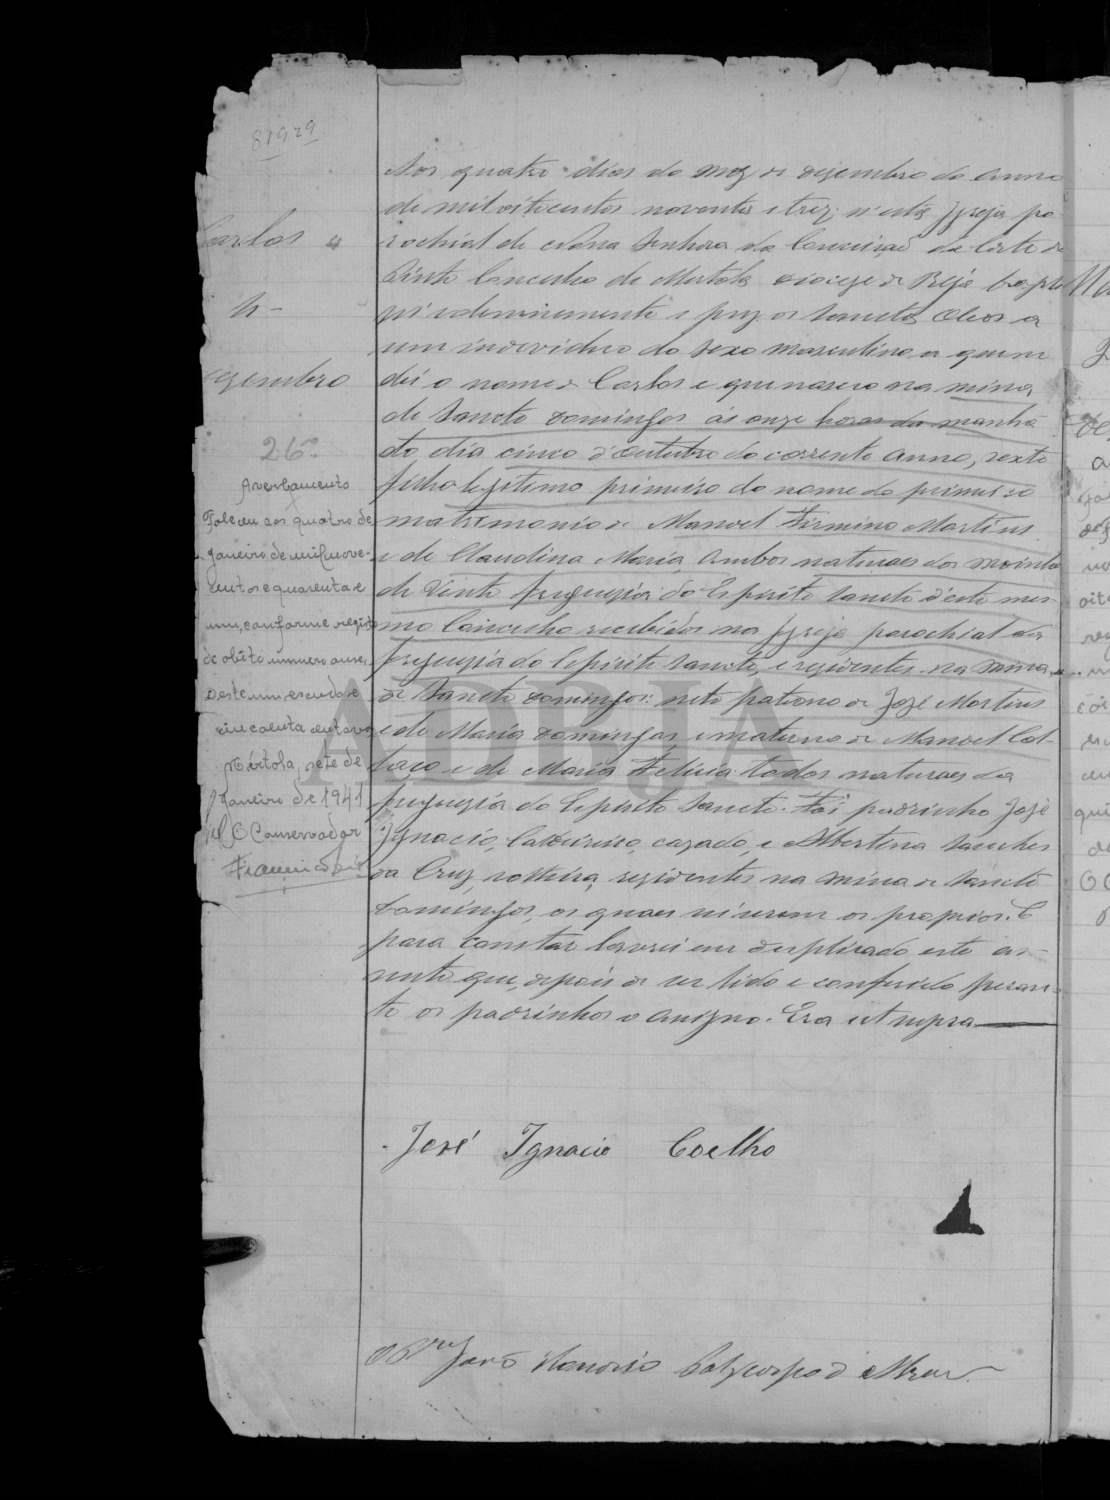 81929
Carlos 4
N-
Dezembro
26º
Averbamento
Faleceu aos quatro de
Janeiro de mil nove-
centos e quarenta e
um, conforme registo
de obito numero onze,
Deste um escudo e
cincoenta centavos
Mértola, sete de
Janeiro de 1941
O Conservador
Aos quatro dias do mez de dezembro do anno
de mil oitocentos noventa e trez, n'esta Igreja pa
rochial de Nossa Senhora da Conceição da Corte do
Pinto Concelho de Mertola diocese de Beja bapti
sei solemnemente e puz os Sanctos Oleos a
um individuo do sexo masculino a quem
dei o nome de Carlos e que nasceo na mina
de Sancto Domingos ás onze horas da manhã
do dia cinco d'Outubro do corrente anno, sexto
filho legitimo primeiro do nome do primeiro
matrimonio de Manoel Firmino Martins
e de Claudina Maria, ambos naturaes dos
de Vinte freguezia do Espirito Sancto d'este mes
mo Concelho recebidos na Igreja parochial da
freguezia do Espirito Sancto, e residentes na mina
de Sancto Domingos: neto paterno de José Martins
e de Maria Domingas, e materno de Manoel Col-
laço e de Maria Felicia todos naturaes da
freguezia do Espirito Sancto. Foi padrinho José
Ignacio, cazado, e Albertina Sanches
da Cruz, solteira, residentes na mina de Sancto
Domingos, os quaes os proprios. E
para constar lavrei em duplicado este as-
sento que, depois de ser lido e conferido peran-
te os padrinhos o assigno. Era ut supra
José Ignacio Coelho
ADBJA